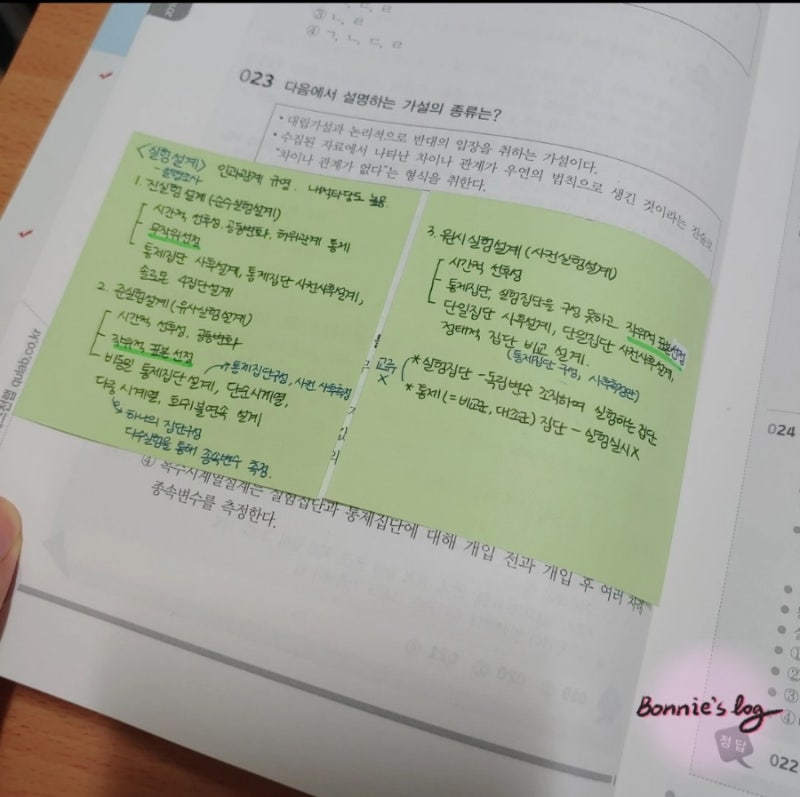 ③ ㄴ, ㄹ
④ ㄱ, ㄴ, ㄷ, ㄹ
023 다음에서 설명하는 가설의 종류는?
• 대립가설과 논리적으로 반대의 입장을 취하는 가설이다.
• 수집된 자료에서 나타난 차이나 관계가 우연의 법칙으로 생긴 것이라는 진술로
"차이나 관계가 없다"는 형식을 취한다.
<실험설계> 인과관계 규명. 내적타당도 높음.
- 실험조사
1. 진실험설계 (=순수실험설계)
시간적 선후성, 공동변화, 허위관계 통제
무작위선정
통제집단 사후설계, 통제집단 사전사후설계,
솔로몬 4집단설계
2. 준실험설계 (유사실험설계)
시간적 선후성, 공동변화
작위적 표본선정
비동일 통제집단 설계, 단순시계열,
통제집단구성, 사전 사후측정
다중 시계열, 회귀불연속 설계
하나의 집단구성
다수실험을 통해 종속변수 측정.
3. 원시실험설계 (사전실험설계)
시간적 선후성
통제집단, 실험집단을 구성 못하고 작위적 표본선정
단일집단 사후설계, 단일집단 사전사후설계,
정태적 집단 비교 설계.
(통제집단 구성, 사후측정만)
교류
X
* 실험집단 - 독립변수 조작하여 실험하는 집단
* 통제 (= 비교군, 대조군) 집단 - 실험실시 X
④ 복수시계열설계는 실험집단과 통제집단에 대해 개입 전과 개입 후 여러 차례
종속변수를 측정한다.
qulab.co.kr
024
022
Bonnie's log
정답